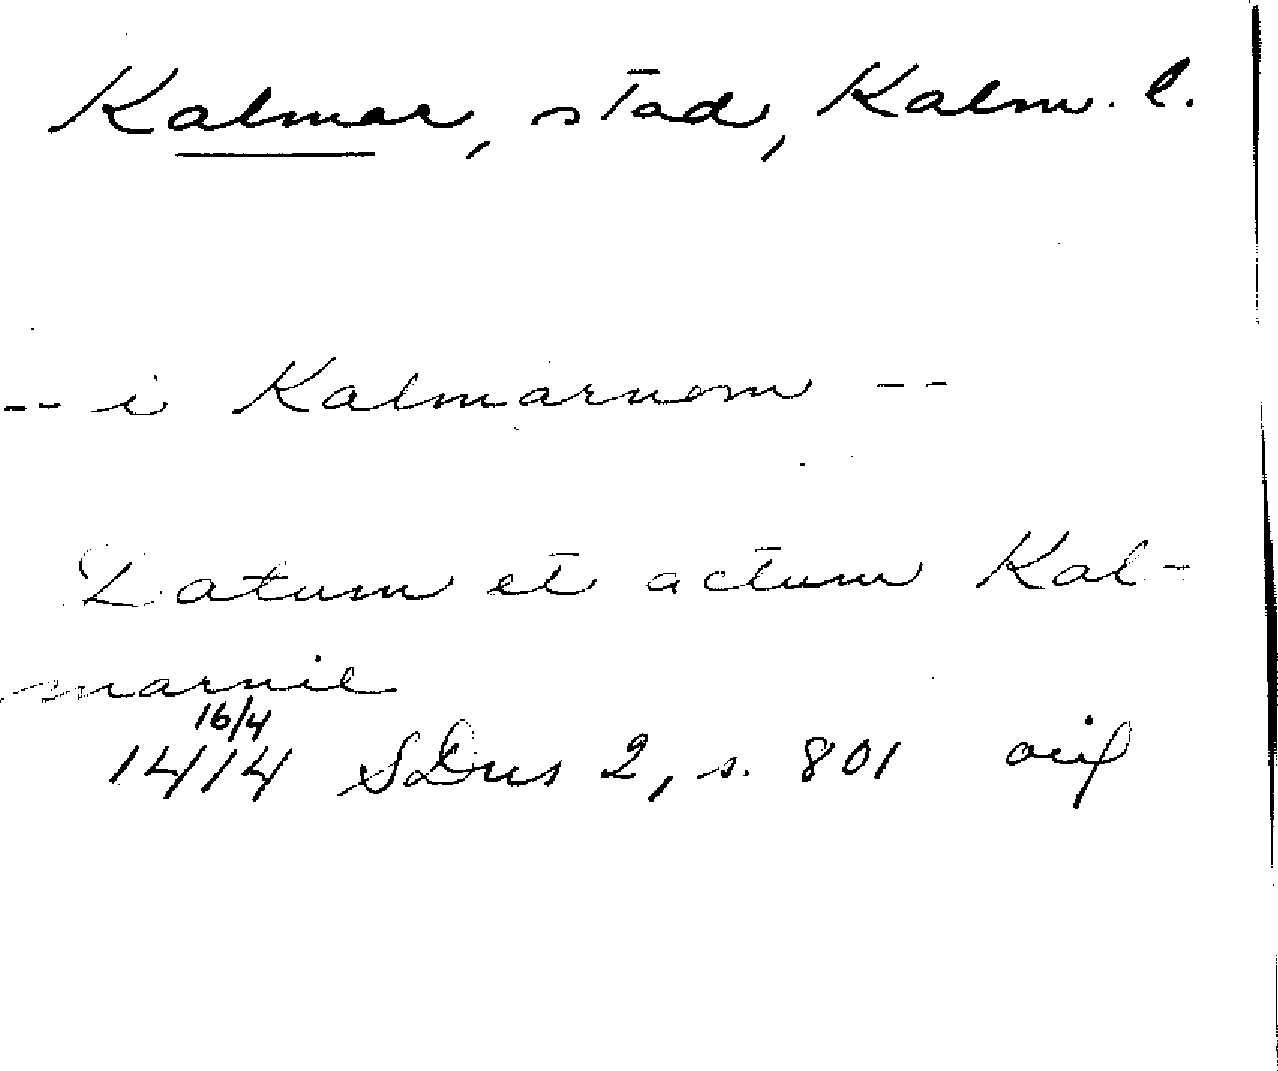 Kalmar, stad, Kalm. l.
-- i Kalmarnom --
Datum et actum Kal-
marnie
16/4
1414 SDns 2, s. 801 oif